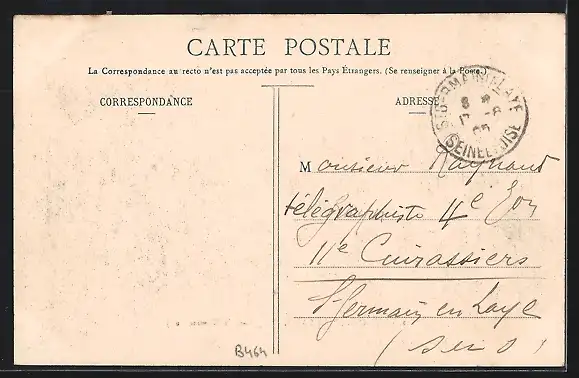 CARTE POSTALE
La Correspondance au recto n'est pas acceptée par tous les Pays Étrangers. (Se renseigner à la Poste.)
CORRESPONDANCE
ADRESSE
ST GERMAIN-EN-LAYE
SEINE-ET-OISE
Monsieur Raynaud
télégraphiste 4e Eon
11e Cuirassiers
St Germain en Laye
B464